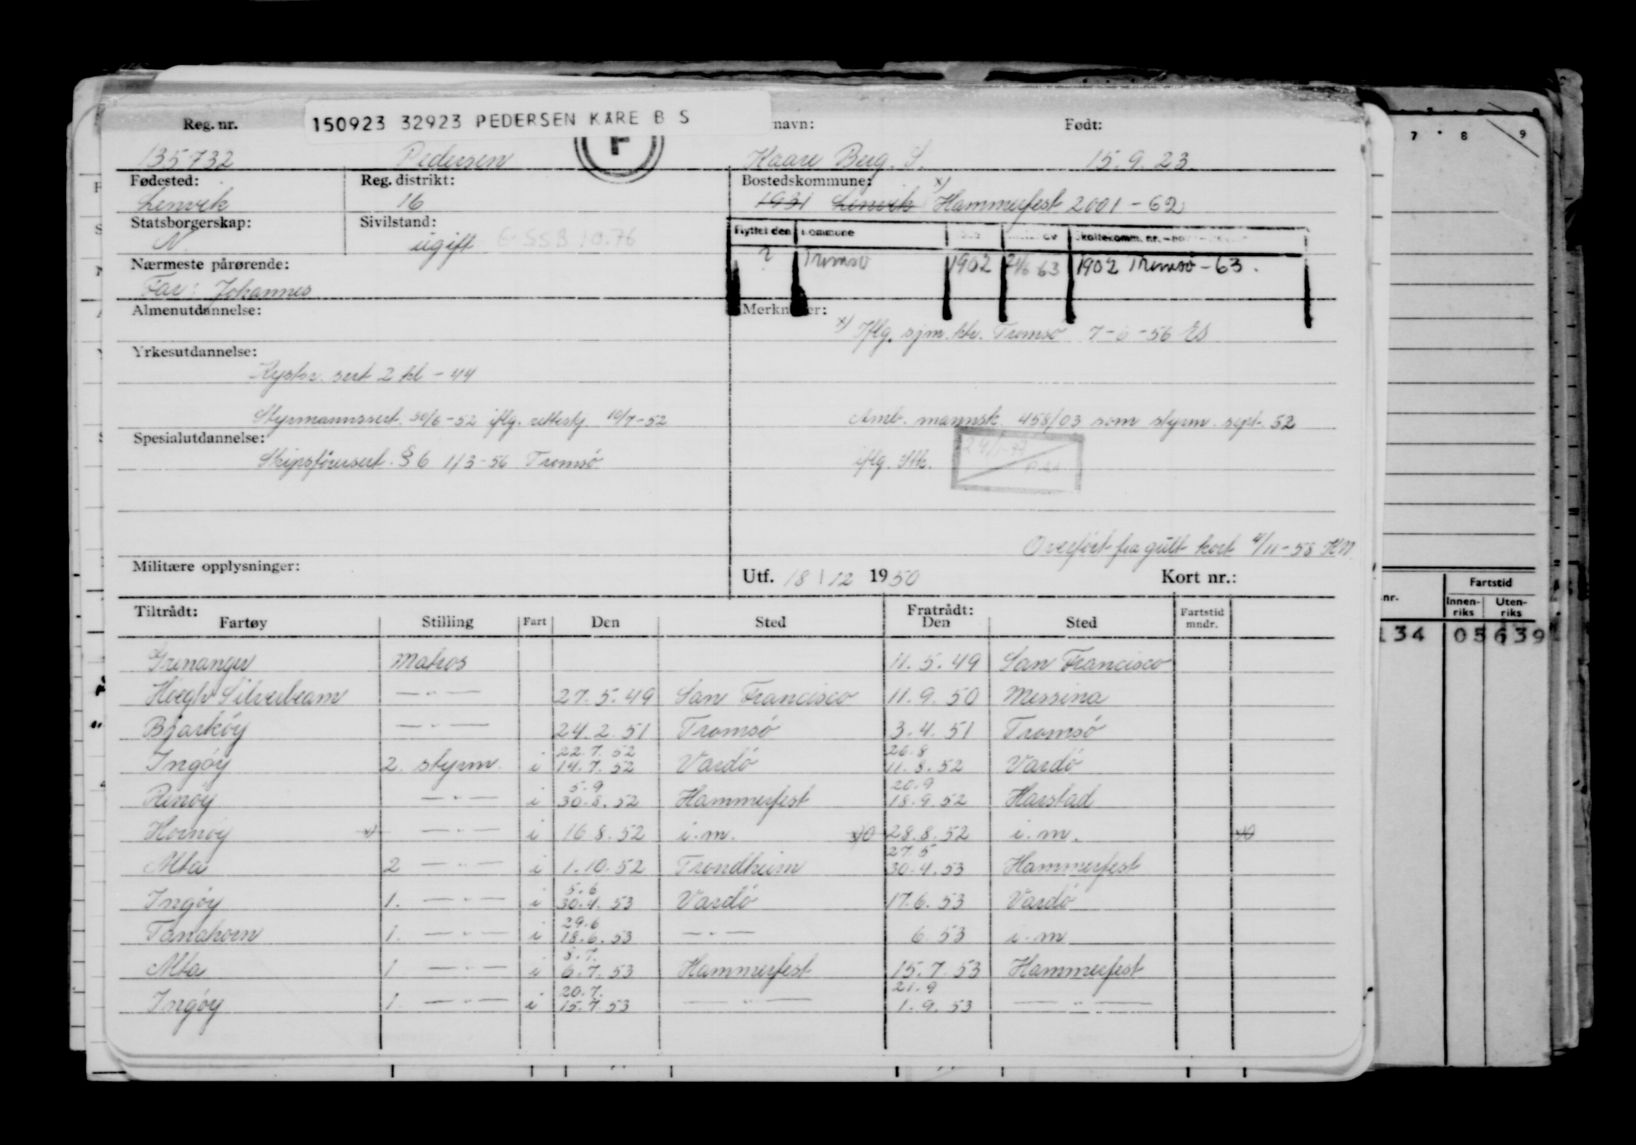 150923 32923 PEDERSEN KÅRE B S
Reg. nr. navn: Født:
7 8 9
135732 Pedersen F Kaare Berg. S. 15.9.23
Fødested: Reg. distrikt: Bostedskommune:
Lenvik 16 1931 Lenvik x/ Hammerfest 2001 - 62
Statsborgerskap: Sivilstand:
N ugift
Flyttet den
? Tromsø 1902 63 1902 Tromsø - 63.
Nærmeste pårørende:
Far: Johannes
Almenutdannelse: Merknader:
x/ Iflg. sjm. ktr. Tromsø 7-6-56
Yrkesutdannelse:
Kystsk. sert 2 kl - 44
Styrmannssert. 30/6-52 iflg. 10/7-52 mannsk. 458/03 som styrm. sept. 52
Spesialutdannelse:
Skipsførersert. § 6 1/3-56 Tromsø iflg.
Overført fra gult kort 4/11-58
Militære opplysninger: Utf. 18/12 1950 Kort nr.:
Tiltrådt: Fratrådt:
Fartøy Stilling Fart Den Sted Den Sted Fartstid mndr.
nr. Fartstid
Innen-riks Uten-riks
134 05 639
Grenanger Matros 11.5.49 San Francisco
Høegh Silverbeam —"— 27.5.49 San Francisco 11.9.50 Messina
Bjarkøy —"— 24.2.51 Tromsø 3.4.51 Tromsø
22.7.52 20.8
Ingøy 2. styrm. i 14.7.52 Vardø 11.8.52 Vardø
5.9 20.9
Rinøy —"— i 30.8.52 Hammerfest 18.9.52 Harstad
Hornøy x) —"— i 16.8.52 i.m. 28.8.52 i.m.
27.5
Alta 2 —"— i 1.10.52 Trondheim 30.4.53 Hammerfest
5.6
Ingøy 1. —"— i 30.4.53 Vardø 17.6.53 Vardø
29.6
Tanahorn 1. —"— i 18.6.53 —"— 6.53 i.m
8.7.
Alta 1 —"— i 6.7.53 Hammerfest 15.7.53 Hammerfest
20.7. 21.9
Ingøy 1. —"— i 15.7.53 —"— 1.9.53 —"—